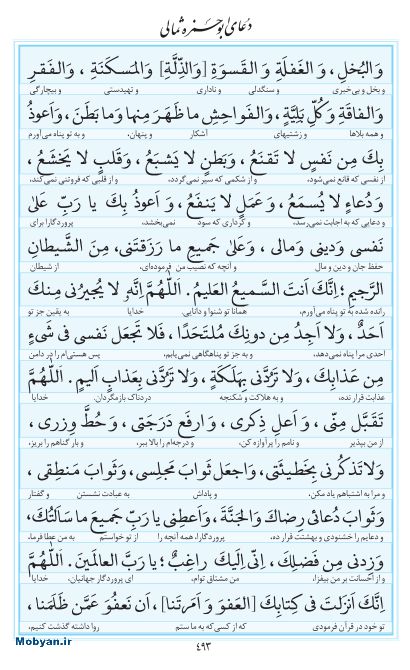 دعای ابوحمزه ثمالی
وَالبُخلِ، وَ الغَفلَةِ وَ القَسوَةِ [وَالذِّلَّةِ] وَالمَسكَنَةِ ، وَالفَقرِ
و بخل و بی‌خبری و سنگدلی و ناداری و تهیدستی و بیچارگی
وَالفاقَةِ وَكُلِّ بَلِيَّةٍ، وَالفَواحِشِ ما ظَهَرَ مِنها وَما بَطَنَ، وَاَعوذُ
و همه بلاها و زشتیهای آشکار و پنهان، و به تو پناه می‌آورم
بِكَ مِن نَفسٍ لا تَقنَعُ ، وَبَطنٍ لا يَشبَعُ ، وَقَلبٍ لا يَخشَعُ ،
از نفسی که قانع نمی‌شود، و از شکمی که سیر نمی‌گردد، و از قلبی که فروتنی نمی‌کند،
وَدُعاءٍ لا يُسمَعُ ، وَعَمَلٍ لا يَنفَعُ ، وَ اَعوذُ بِكَ يا رَبِّ عَلىٰ
و دعایی که به اجابت نمی‌رسد، و کرداری که سود نمی‌بخشد، پروردگارا برای
نَفسى وَدينى وَمالى ، وَعَلىٰ جَميعِ ما رَزَقتَنى، مِنَ الشَّيطانِ
حفظ جان و دین و مال و آنچه که نصیب من فرموده‌ای، از شیطان
الرَّجيمِ؛ اِنَّكَ اَنتَ السَّميعُ العَليمُ. اَللّٰهُمَّ اِنَّهُ لا يُجيرُنى مِنكَ
رانده شده به تو پناه می‌آورم، همانا تو شنوا و دانایی. خدایا به یقین جز تو
اَحَدٌ ، وَلا اَجِدُ مِن دونِكَ مُلتَحَدًا ، فَلا تَجعَل نَفسى فى شَىءٍ
احدی مرا پناه نمی‌دهد، و به جز تو پناهگاهی نمی‌یابم، پس هستی‌ام را در دامن
مِن عَذابِكَ، وَلا تَرُدَّنى بِهَلَكَةٍ، وَلا تَرُدَّنى بِعَذابٍ اَليمٍ. اَللّٰهُمَّ
عذابت قرار نده، و به هلاکت و شکنجه دردناک بازمگردان. خدایا
تَقَبَّل مِنّى ، وَ اَعلِ ذِكرى ، وَارفَع دَرَجَتى ، وَحُطَّ وِزرى ،
از من بپذیر و نامم را پرآوازه کن، و درجه‌ام را بالا ببر، و بار گناهم را بریز،
وَلاتَذكُرنى بِخَطيئَتى، وَاجعَل ثَوابَ مَجلِسى، وَثَوابَ مَنطِقى ،
و مرا به اشتباهم یاد مکن. و پاداش به عبادت نشستن و گفتار
وَثَوابَ دُعائى رِضاكَ وَالجَنَّةَ ، وَاَعطِنى يا رَبِّ جَميعَ ما سَاَلتُكَ،
و دعایم را خشنودی و بهشتت قرار ده. پروردگارا، همه آنچه را از تو خواستم به من عطا فرما،
وَزِدنى مِن فَضلِكَ، اِنّى اِلَيكَ راغِبٌ؛ يا رَبَّ العالَمينَ. اَللّٰهُمَّ
و از احسانت بر من بیفزا، من مشتاق توام، ای پروردگار جهانیان. خدایا
اِنَّكَ اَنزَلتَ فى كِتابِكَ [العَفوَ وَ اَمَرتَنا] ، اَن نَعفُوَ عَمَّن ظَلَمَنا ،
تو خود در قرآن فرمودی که از کسی‌که به ما ستم روا داشته گذشت کنیم،
Mobyan.ir
۴۹۳